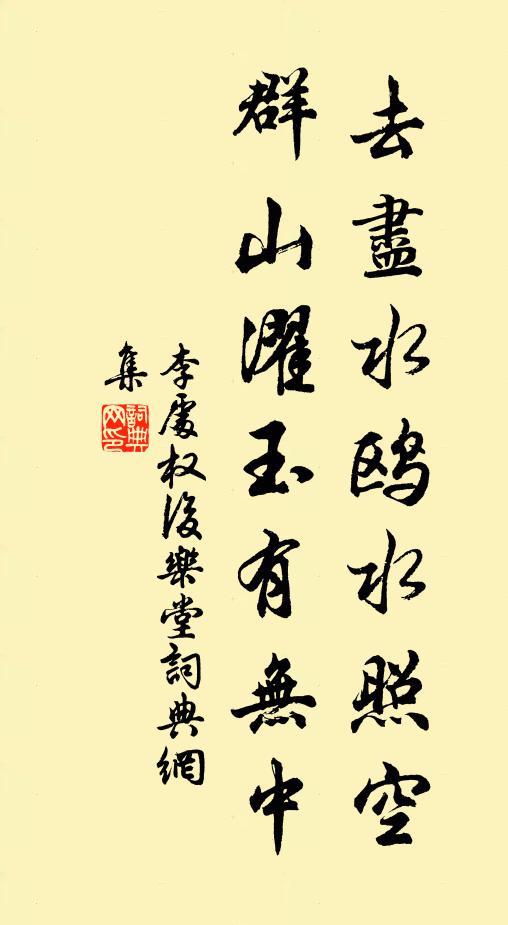 去盡水鸥水照空
群山濯玉有無中
李處权後樂堂詞典網
集
詞典網印